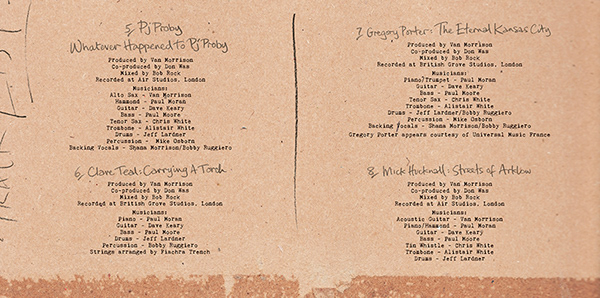 5, Pj Proby
Whatever Happened to Pj Proby
Produced by Van Morrison
Co-produced by Don Was
Mixed by Bob Rock
Recorded at Air Studios, London
Musicians:
Alto Sax - Van Morrison
Hammond - Paul Moran
Guitar - Dave Keary
Bass - Paul Moore
Tenor Sax - Chris White
Trombone - Alistair White
Drums - Jeff Lardner
Percussion - Mike Osborn
Backing Vocals - Shana Morrison/Bobby Ruggiero
6, Clare Teal: Carrying A Torch
Produced by Van Morrison
Co-produced by Don Was
Mixed by Bob Rock
Recorded at British Grove Studios, London
Musicians:
Piano - Paul Moran
Guitar - Dave Keary
Bass - Paul Moore
Drums - Jeff Lardner
Percussion - Bobby Ruggiero
Strings arranged by Fiachra Trench
7, Gregory Porter: The Eternal Kansas City
Produced by Van Morrison
Co-produced by Don Was
Mixed by Bob Rock
Recorded at British Grove Studios, London
Musicians:
Piano/Trumpet - Paul Moran
Guitar - Dave Keary
Bass - Paul Moore
Tenor Sax - Chris White
Trombone - Alistair White
Drums - Jeff Lardner/Bobby Ruggiero
Percussion - Mike Osborn
Backing Vocals - Shana Morrison/Bobby Ruggiero
Gregory Porter appears courtesy of Universal Music France
8, Mick Hucknall: Streets of Arklow
Produced by Van Morrison
Co-produced by Don Was
Mixed by Bob Rock
Recorded at Air Studios, London
Musicians:
Acoustic Guitar - Van Morrison
Piano/Hammond - Paul Moran
Guitar - Dave Keary
Bass - Paul Moore
Tin Whistle - Chris White
Trombone - Alistair White
Drums - Jeff Lardner